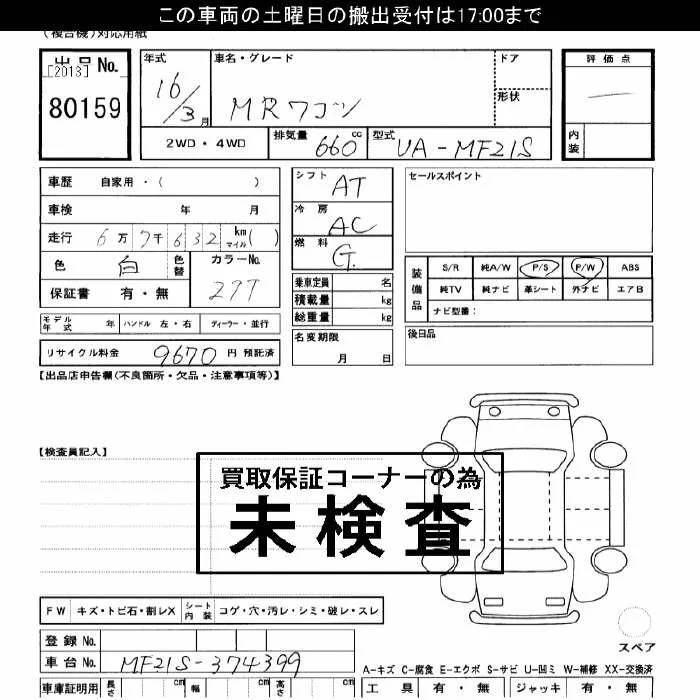 この車両の土曜日の搬出受付は17:00まで
(複合機)対応用紙
出品 No.
[2013]
80159
年式
16/3月
車名・グレード
MRワゴン
ドア
形状
評価点
内装
2WD・4WD
排気量 660 cc
型式 UA-MF21S
車歴 自家用・( )
車検 年 月
走行 6万7千632 km マイル( )
色 白 色替
カラーNo. 27T
保証書 有・無
モデル年式 年 ハンドル 左・右 ディーラー・並行
リサイクル料金 9670 円 預託済
シフト AT
冷房 AC
燃料 G.
乗車定員 名
積載量 kg
総重量 kg
名変期限
月 日
セールスポイント
装備品
S/R 純A/W P/S P/W ABS
純TV 純ナビ 革シート 外ナビ エアB
ナビ型番:
後日品
【出品店申告欄(不良箇所・欠品・注意事項等)】
【検査員記入】
買取保証コーナーの為
未検査
FW キズ・トビ石・割レX シート内装 コゲ・穴・汚レ・シミ・破レ・スレ
登録 No.
車台 No. MF21S-374399
スペア
A-キズ C-腐食 E-エクボ S-サビ U-凹ミ W-補修 XX-交換済
車庫証明用 長さ cm 幅 cm 高さ cm
工具 有・無 ジャッキ 有・無